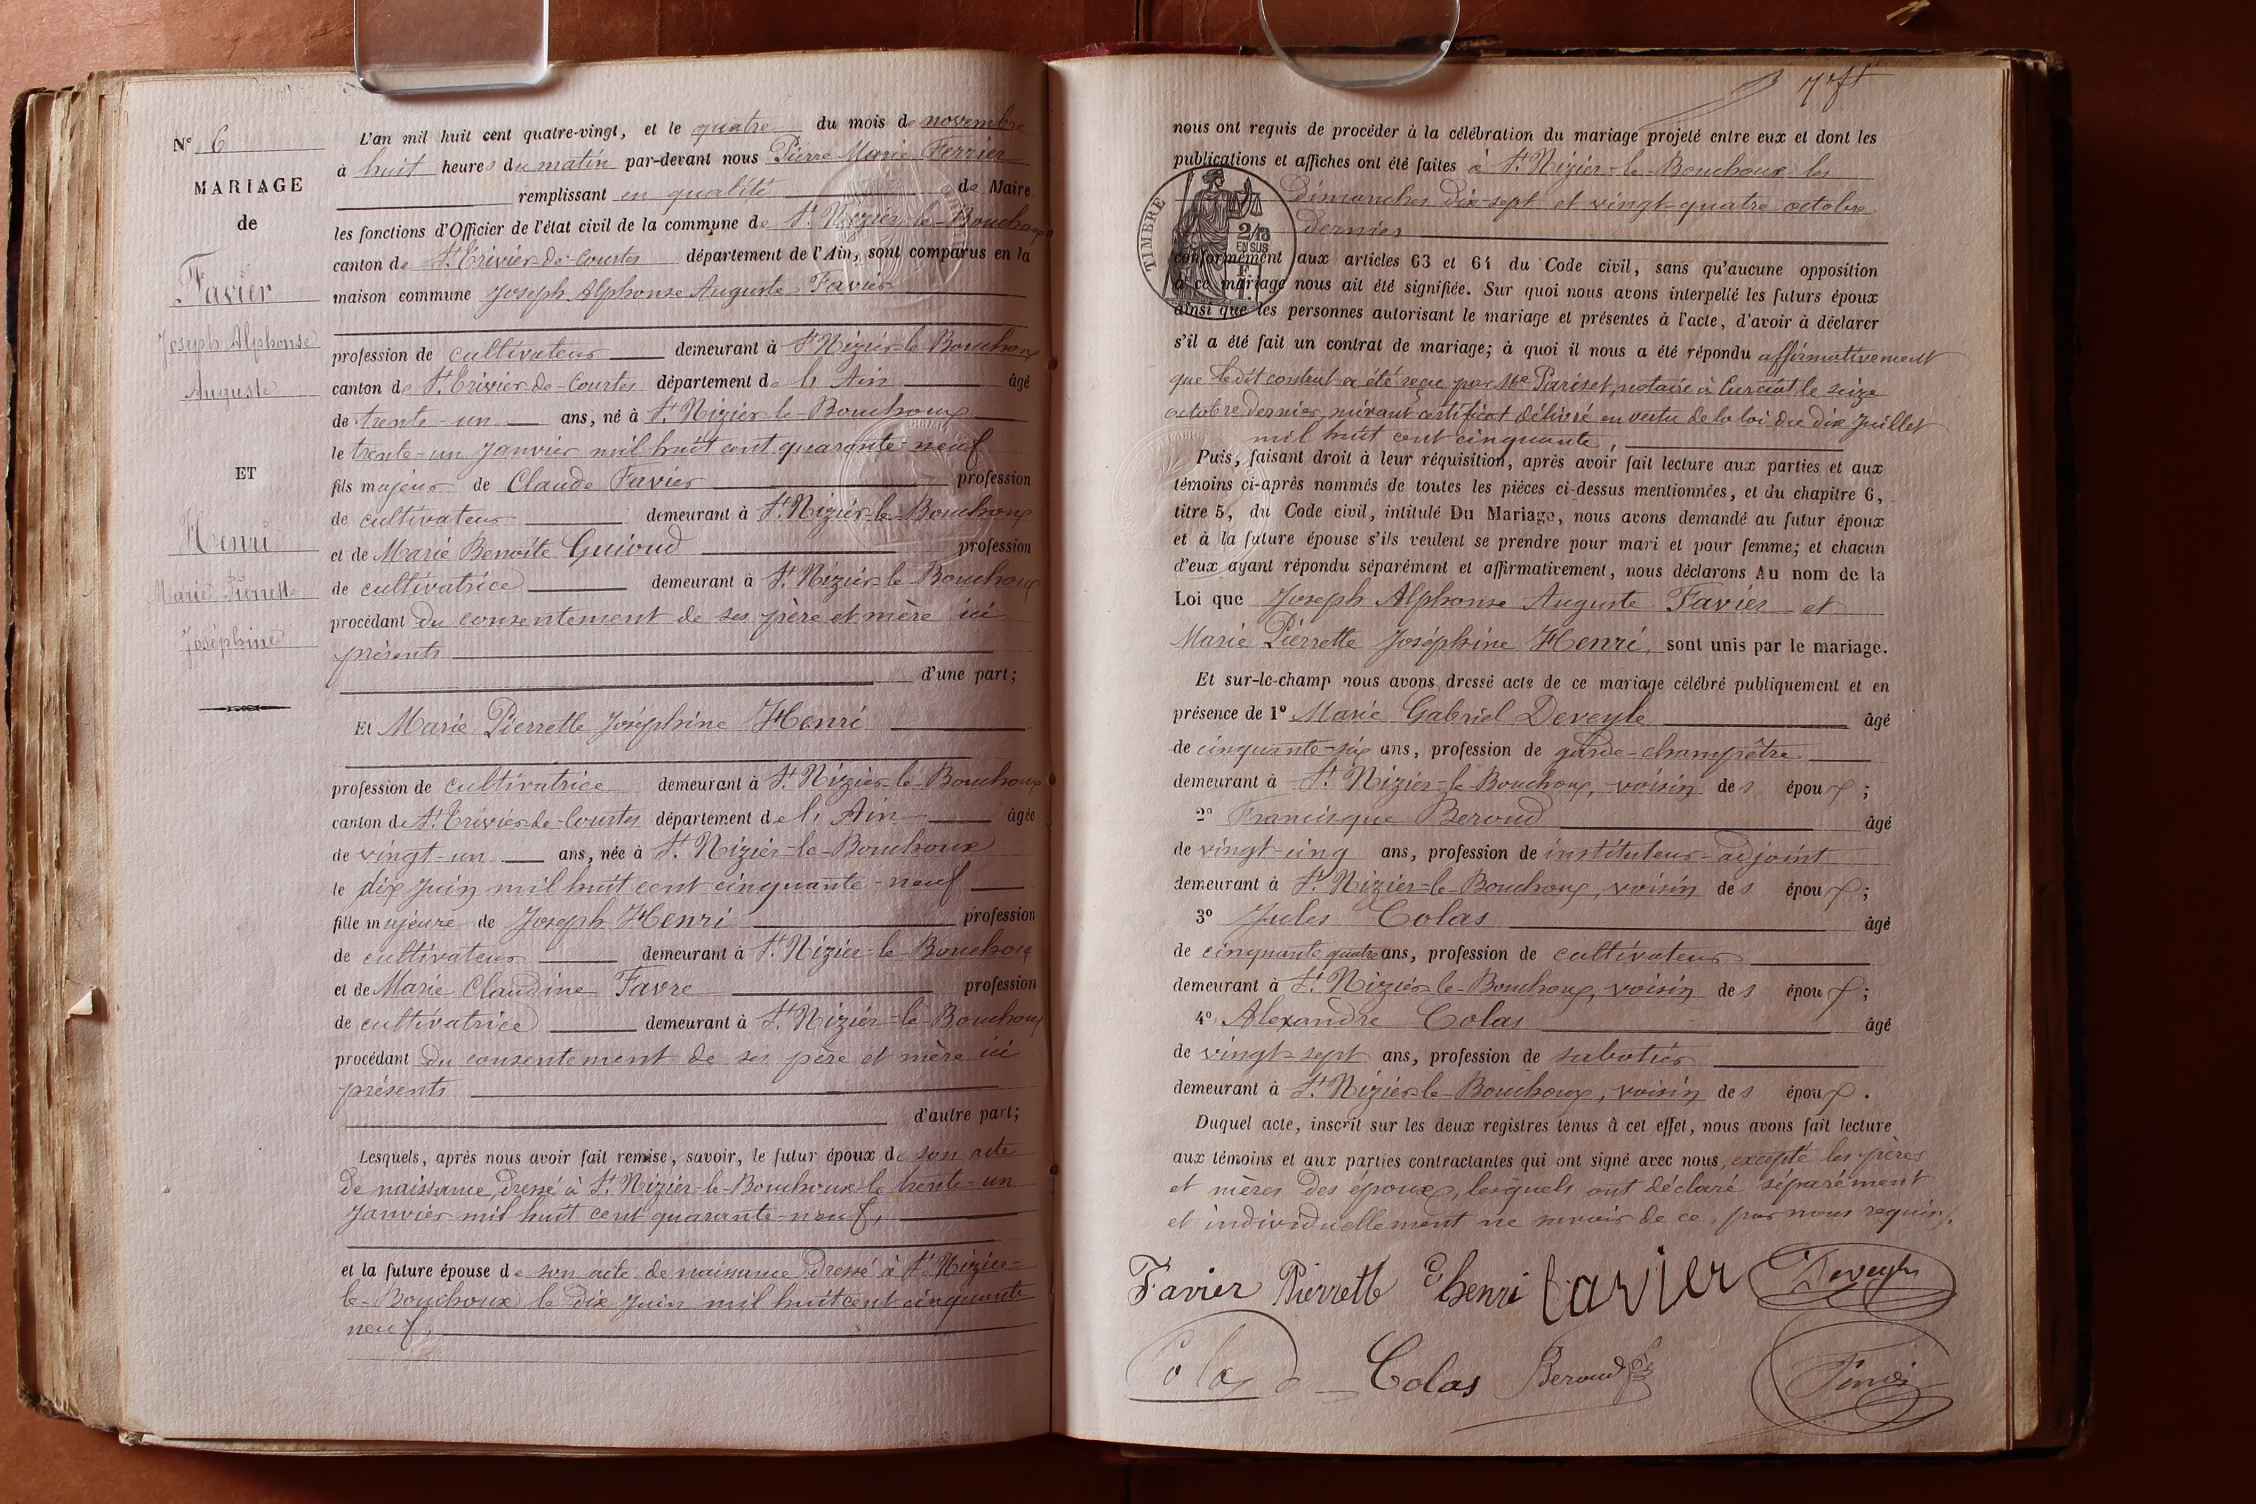 N° 6
MARIAGE
de
Favier
Joseph Alphonse
Auguste
ET
Henri
Marie Pierrette
Joséphine
L'an mil huit cent quatre-vingt, et le quatre du mois de novembre
à huit heures du matin par-devant nous Pierre Marie Ferrier
remplissant en qualité de Maire
les fonctions d'Officier de l'état civil de la commune de St Nizier-le-Bouchoux
canton de St Trivier-de-Courtes département de l'Ain, sont comparus en la
maison commune Joseph Alphonse Auguste Favier
profession de cultivateur demeurant à St Nizier-le-Bouchoux
canton de St Trivier-de-Courtes département de l'Ain âgé
de trente-un ans, né à St Nizier-le-Bouchoux
le trente-un Janvier mil huit cent quarante-neuf
fils majeur de Claude Favier profession
de cultivateur demeurant à St Nizier-le-Bouchoux
et de Marie Benoîte Guioud profession
de cultivatrice demeurant à St Nizier-le-Bouchoux
procédant du consentement de ses père et mère ici
présents
d'une part;
Et Marie Pierrette Joséphine Henri
profession de cultivatrice demeurant à St Nizier-le-Bouchoux
canton de St Trivier-de-Courtes département de l'Ain âgée
de vingt-un ans, née à St Nizier-le-Bouchoux
le dix Juin mil huit cent cinquante-neuf
fille majeure de Joseph Henri profession
de cultivateur demeurant à St Nizier-le-Bouchoux
et de Marie Claudine Favre profession
de cultivatrice demeurant à St Nizier-le-Bouchoux
procédant du consentement de ses père et mère ici
présents
d'autre part;
Lesquels, après nous avoir fait remise, savoir, le futur époux de son acte
de naissance dressé à St Nizier-le-Bouchoux le trente-un
Janvier mil huit cent quarante-neuf,
et la future épouse de son acte de naissance dressé à St Nizier-
le-Bouchoux le dix Juin mil huit cent cinquante
neuf,
nous ont requis de procéder à la célébration du mariage projeté entre eux et dont les
publications et affiches ont été faites à St Nizier-le-Bouchoux les
Dimanches dix-sept et vingt-quatre octobre
dernier
TIMBRE
2/10
EN SUS
conformément aux articles 63 et 64 du Code civil, sans qu'aucune opposition
à ce mariage nous ait été signifiée. Sur quoi nous avons interpellé les futurs époux
ainsi que les personnes autorisant le mariage et présentes à l'acte, d'avoir à déclarer
s'il a été fait un contrat de mariage; à quoi il nous a été répondu affirmativement
que ledit contrat a été reçu par Me Pariset, notaire à Curciat le seize
octobre dernier, suivant certificat délivré en vertu de la loi du dix Juillet
mil huit cent cinquante,
Puis, faisant droit à leur réquisition, après avoir fait lecture aux parties et aux
témoins ci-après nommés de toutes les pièces ci-dessus mentionnées, et du chapitre 6,
titre 5, du Code civil, intitulé Du Mariage, nous avons demandé au futur époux
et à la future épouse s'ils veulent se prendre pour mari et pour femme; et chacun
d'eux ayant répondu séparément et affirmativement, nous déclarons Au nom de la
Loi que Joseph Alphonse Auguste Favier et
Marie Pierrette Joséphine Henri, sont unis par le mariage.
Et sur-le-champ nous avons dressé acte de ce mariage célébré publiquement et en
présence de 1° Marie Gabriel Deveyle âgé
de cinquante-six ans, profession de garde-champêtre
demeurant à St Nizier-le-Bouchoux, voisin des époux;
2° Francisque Beroud âgé
de vingt-cinq ans, profession de instituteur-adjoint
demeurant à St Nizier-le-Bouchoux, voisin des époux;
3° Jules Colas âgé
de cinquante quatre ans, profession de cultivateur
demeurant à St Nizier-le-Bouchoux, voisin des époux;
4° Alexandre Colas âgé
de vingt-sept ans, profession de sabotier
demeurant à St Nizier-le-Bouchoux, voisin des époux.
Duquel acte, inscrit sur les deux registres tenus à cet effet, nous avons fait lecture
aux témoins et aux parties contractantes qui ont signé avec nous, excepté les pères
et mères des époux, lesquels ont déclaré séparément
et individuellement ne savoir de ce, par nous requis,
Favier Pierrette henri favier Deveyle
Colas Colas Beroud Ferrier